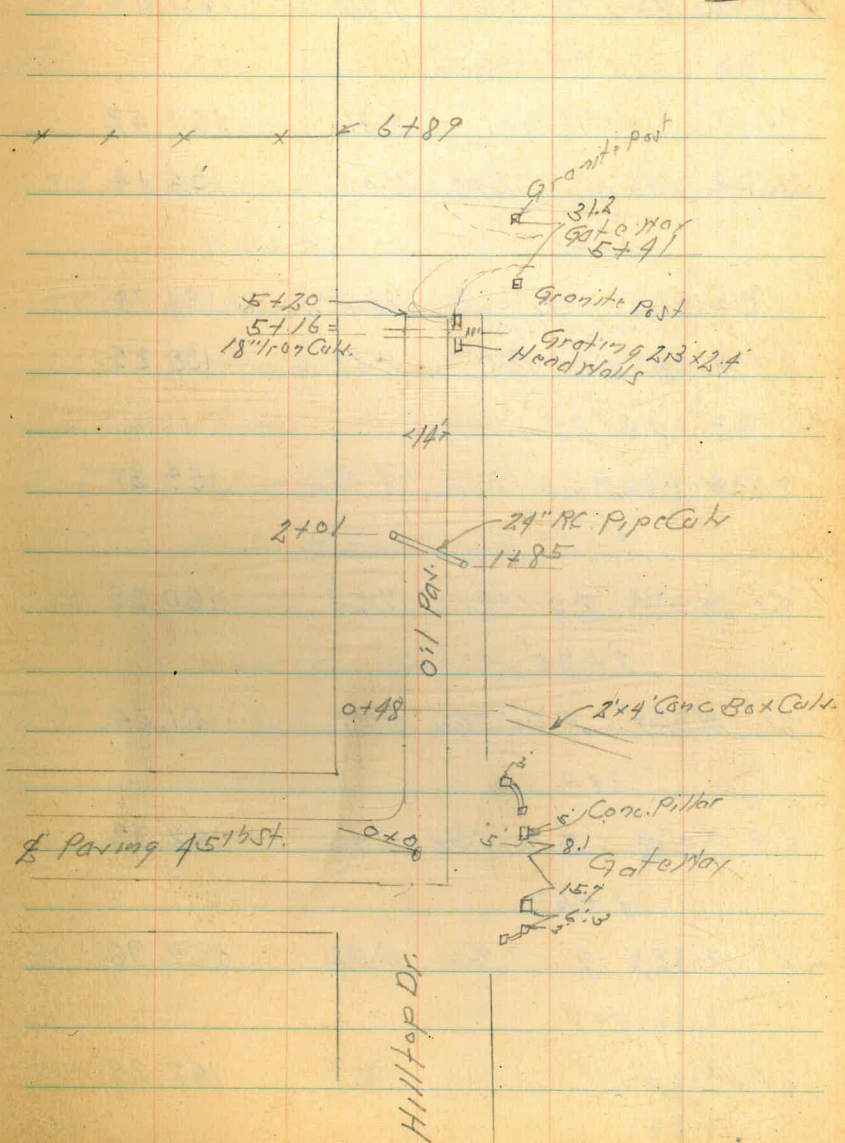 6+89
Granite Post
31.2
Gate Way
5+41
Granite Post
5+20
5+16 =
18" Iron Culv.
Grating 2.3'x2.4'
Head Walls
14'
24" RC. Pipe Culv
2+01
1+85
Oil Pav.
0+48
2'x4' Conc Box Culv.
3'
5' Conc. Pillar
5'
8.1
Gate Way
0+0
₵ Paving 45th St.
15.7
Hilltop Dr.